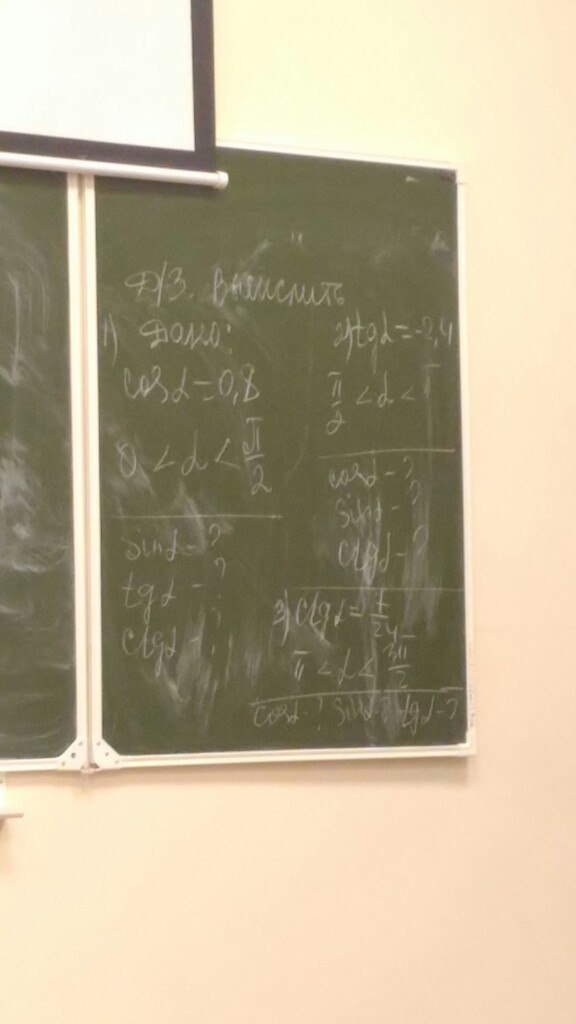 Д/З. Вычислить
1) Дано:
cosα = 0,8
0 < α < π/2
sinα - ?
tgα - ?
ctgα - ?
2) tgα = -2,4
π/2 < α < π
cosα - ?
sinα - ?
ctgα - ?
3) ctgα = 7/24
π < α < 3π/2
cosα - ? sinα - ? tgα - ?